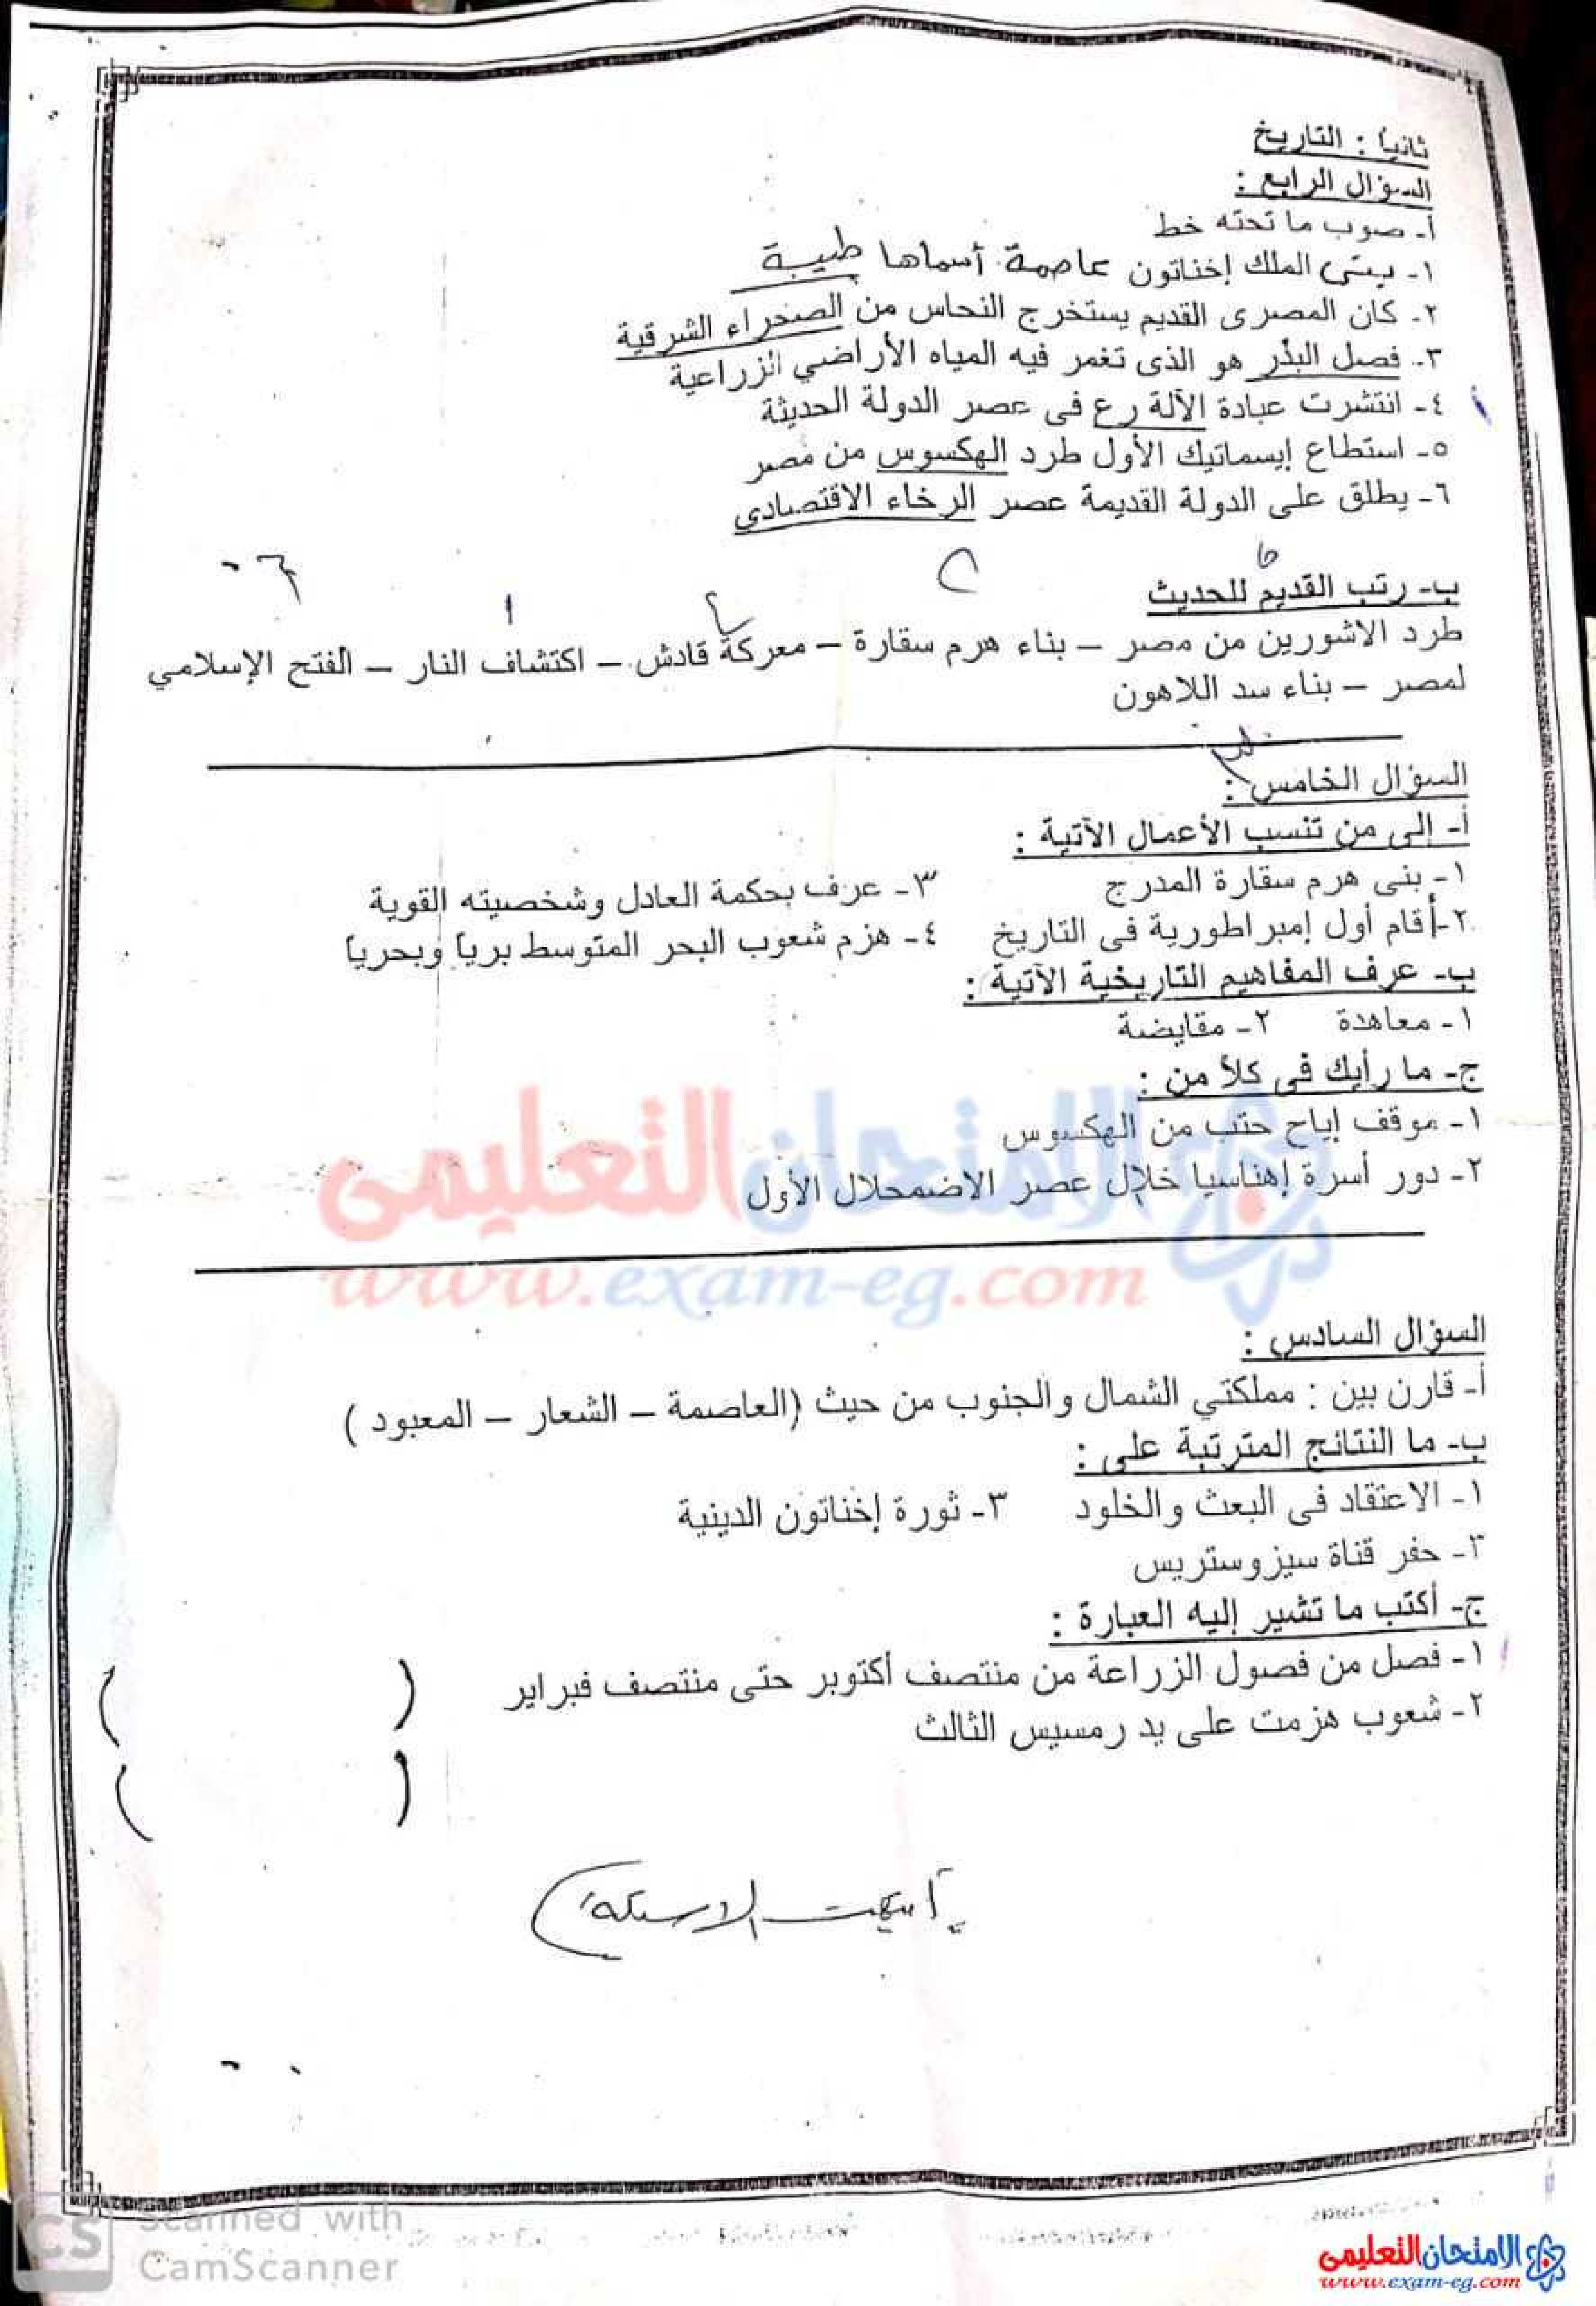 ثانياً : التاريخ
السؤال الرابع :
أ- صوب ما تحته خط
١- بنى الملك إخناتون عاصمة أسماها طيبة
٢- كان المصرى القديم يستخرج النحاس من الصحراء الشرقية
٣- فصل البذر هو الذى تغمر فيه المياه الأراضي الزراعية
٤- انتشرت عبادة الآلة رع فى عصر الدولة الحديثة
٥- استطاع إبسماتيك الأول طرد الهكسوس من مصر
٦- يطلق على الدولة القديمة عصر الرخاء الاقتصادي
ب- رتب القديم للحديث
طرد الاشورين من مصر – بناء هرم سقارة – معركة قادش – اكتشاف النار – الفتح الإسلامي
لمصر – بناء سد اللاهون
السؤال الخامس :
أ- إلى من تنسب الأعمال الآتية :
١- بنى هرم سقارة المدرج ٣- عرف بحكمة العادل وشخصيته القوية
٢- أقام أول إمبراطورية فى التاريخ ٤- هزم شعوب البحر المتوسط برياً وبحرياً
ب- عرف المفاهيم التاريخية الآتية :
١- معاهدة ٢- مقايضة
ج- ما رأيك فى كلاً من :
١- موقف إياح حتب من الهكسوس
٢- دور أسرة إهناسيا خلال عصر الاضمحلال الأول
الامتحان التعليمى
www.exam-eg.com
السؤال السادس :
أ- قارن بين : مملكتي الشمال والجنوب من حيث (العاصمة – الشعار – المعبود )
ب- ما النتائج المترتبة على :
١- الاعتقاد فى البعث والخلود ٣- ثورة إخناتون الدينية
٣- حفر قناة سيزوستريس
ج- أكتب ما تشير إليه العبارة :
١- فصل من فصول الزراعة من منتصف أكتوبر حتى منتصف فبراير ( )
٢- شعوب هزمت على يد رمسيس الثالث ( )
انتهت الاسئلة
CS Scanned with
CamScanner
الامتحان التعليمى
www.exam-eg.com